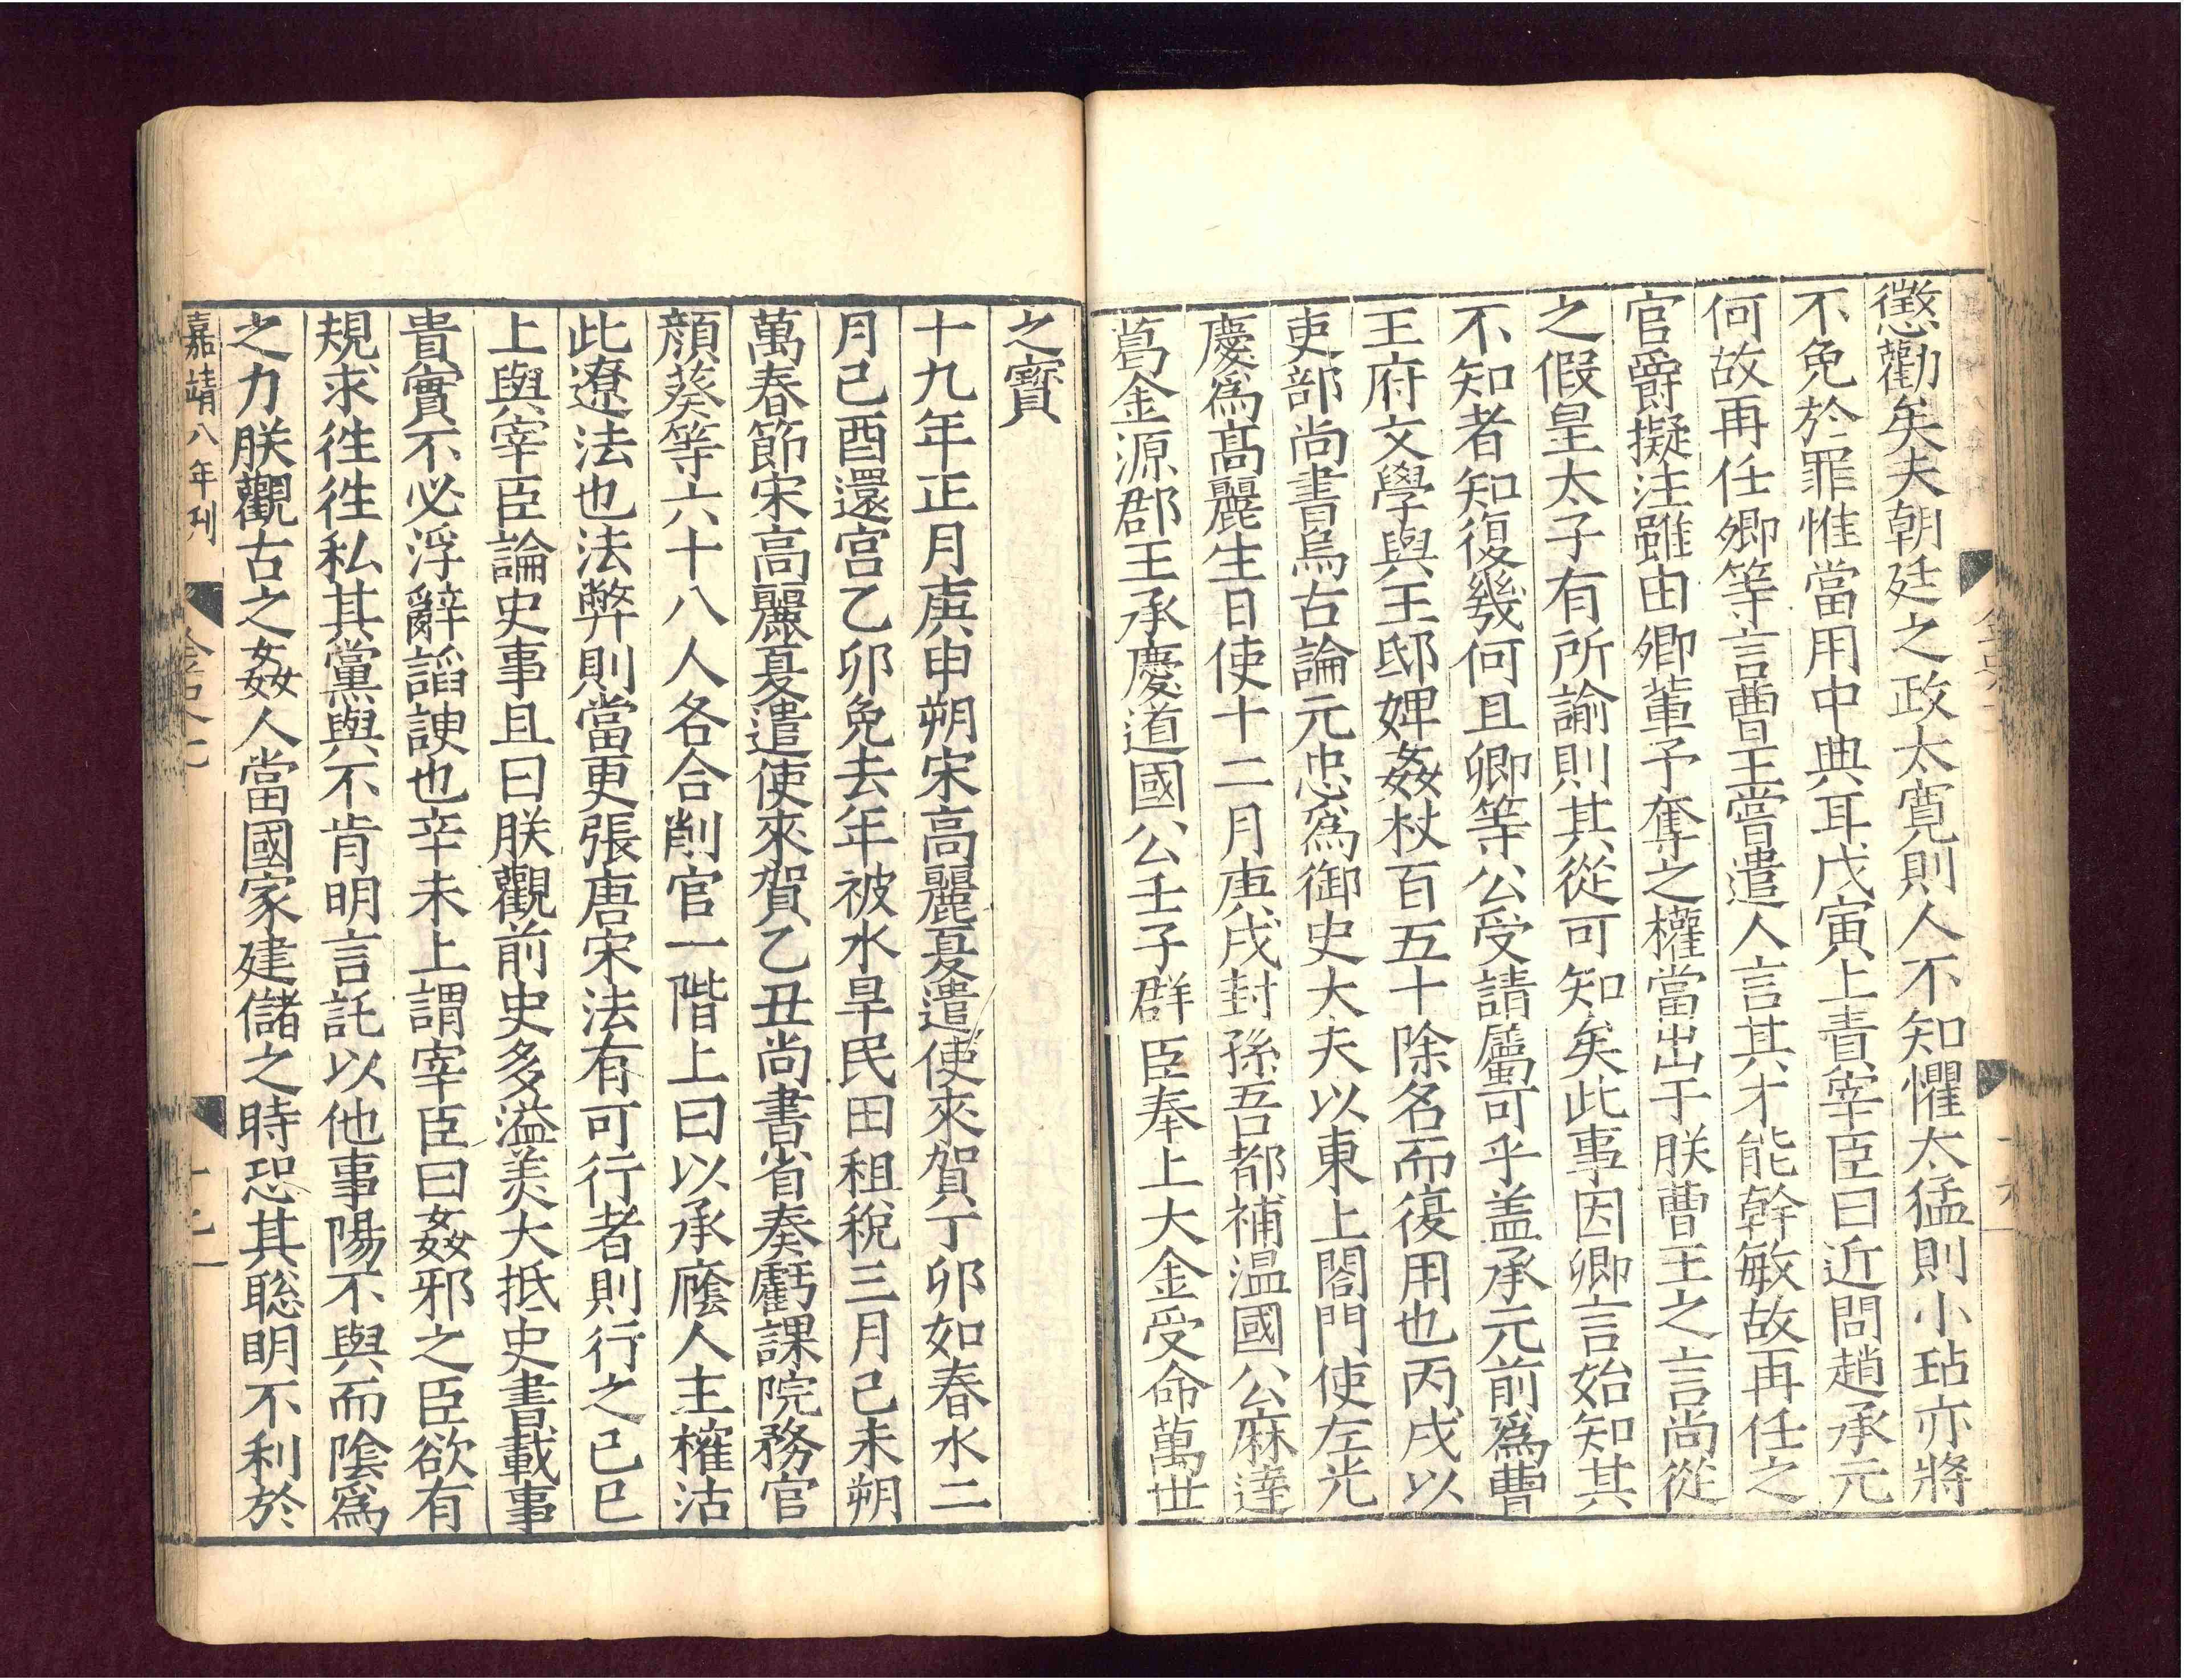 懲勸矣夫朝廷之政太寬則人不知懼太猛則小玷亦將
不免於罪惟當用中典耳戊寅上責宰臣曰近問趙承元
何故再任卿等言曹王嘗遣人言其才能幹敏故再任之
官爵擬注雖由卿輩予奪之權當出于朕曹王之言尚從
之假皇太子有所諭則其從可知矣此事因卿言始知其
不知者知復幾何且卿等公受請屬可乎盖承元前爲曹
王府文學與王邸婢姦杖百五十除名而復用也丙戌以
吏部尚書烏古論元忠爲御史大夫以東上閤門使左光
慶爲髙麗生日使十二月庚戌封孫吾都補温國公麻達
葛金源郡王承慶道國公壬子群臣奉上大金受命萬世
之寳
十九年正月庚申朔宋高麗夏遣使來賀丁卯如春水二
月己酉還宫乙卯免去年被水旱民田租稅三月己未朔
萬春節宋高麗夏遣使來賀乙丑尚書省奏虧課院務官
顏葵等六十八人各合削官一階上曰以承廕人主榷沽
此遼法也法弊則當更張唐宋法有可行者則行之己巳
上與宰臣論史事且曰朕觀前史多溢美大抵史書載事
貴實不必浮辭諂諛也辛未上謂宰臣曰姦邪之臣欲有
規求徃徃私其黨與不肯明言託以他事陽不與而隂爲
之力朕觀古之姦人當國家建儲之時恐其聡明不利於
嘉靖八年刊